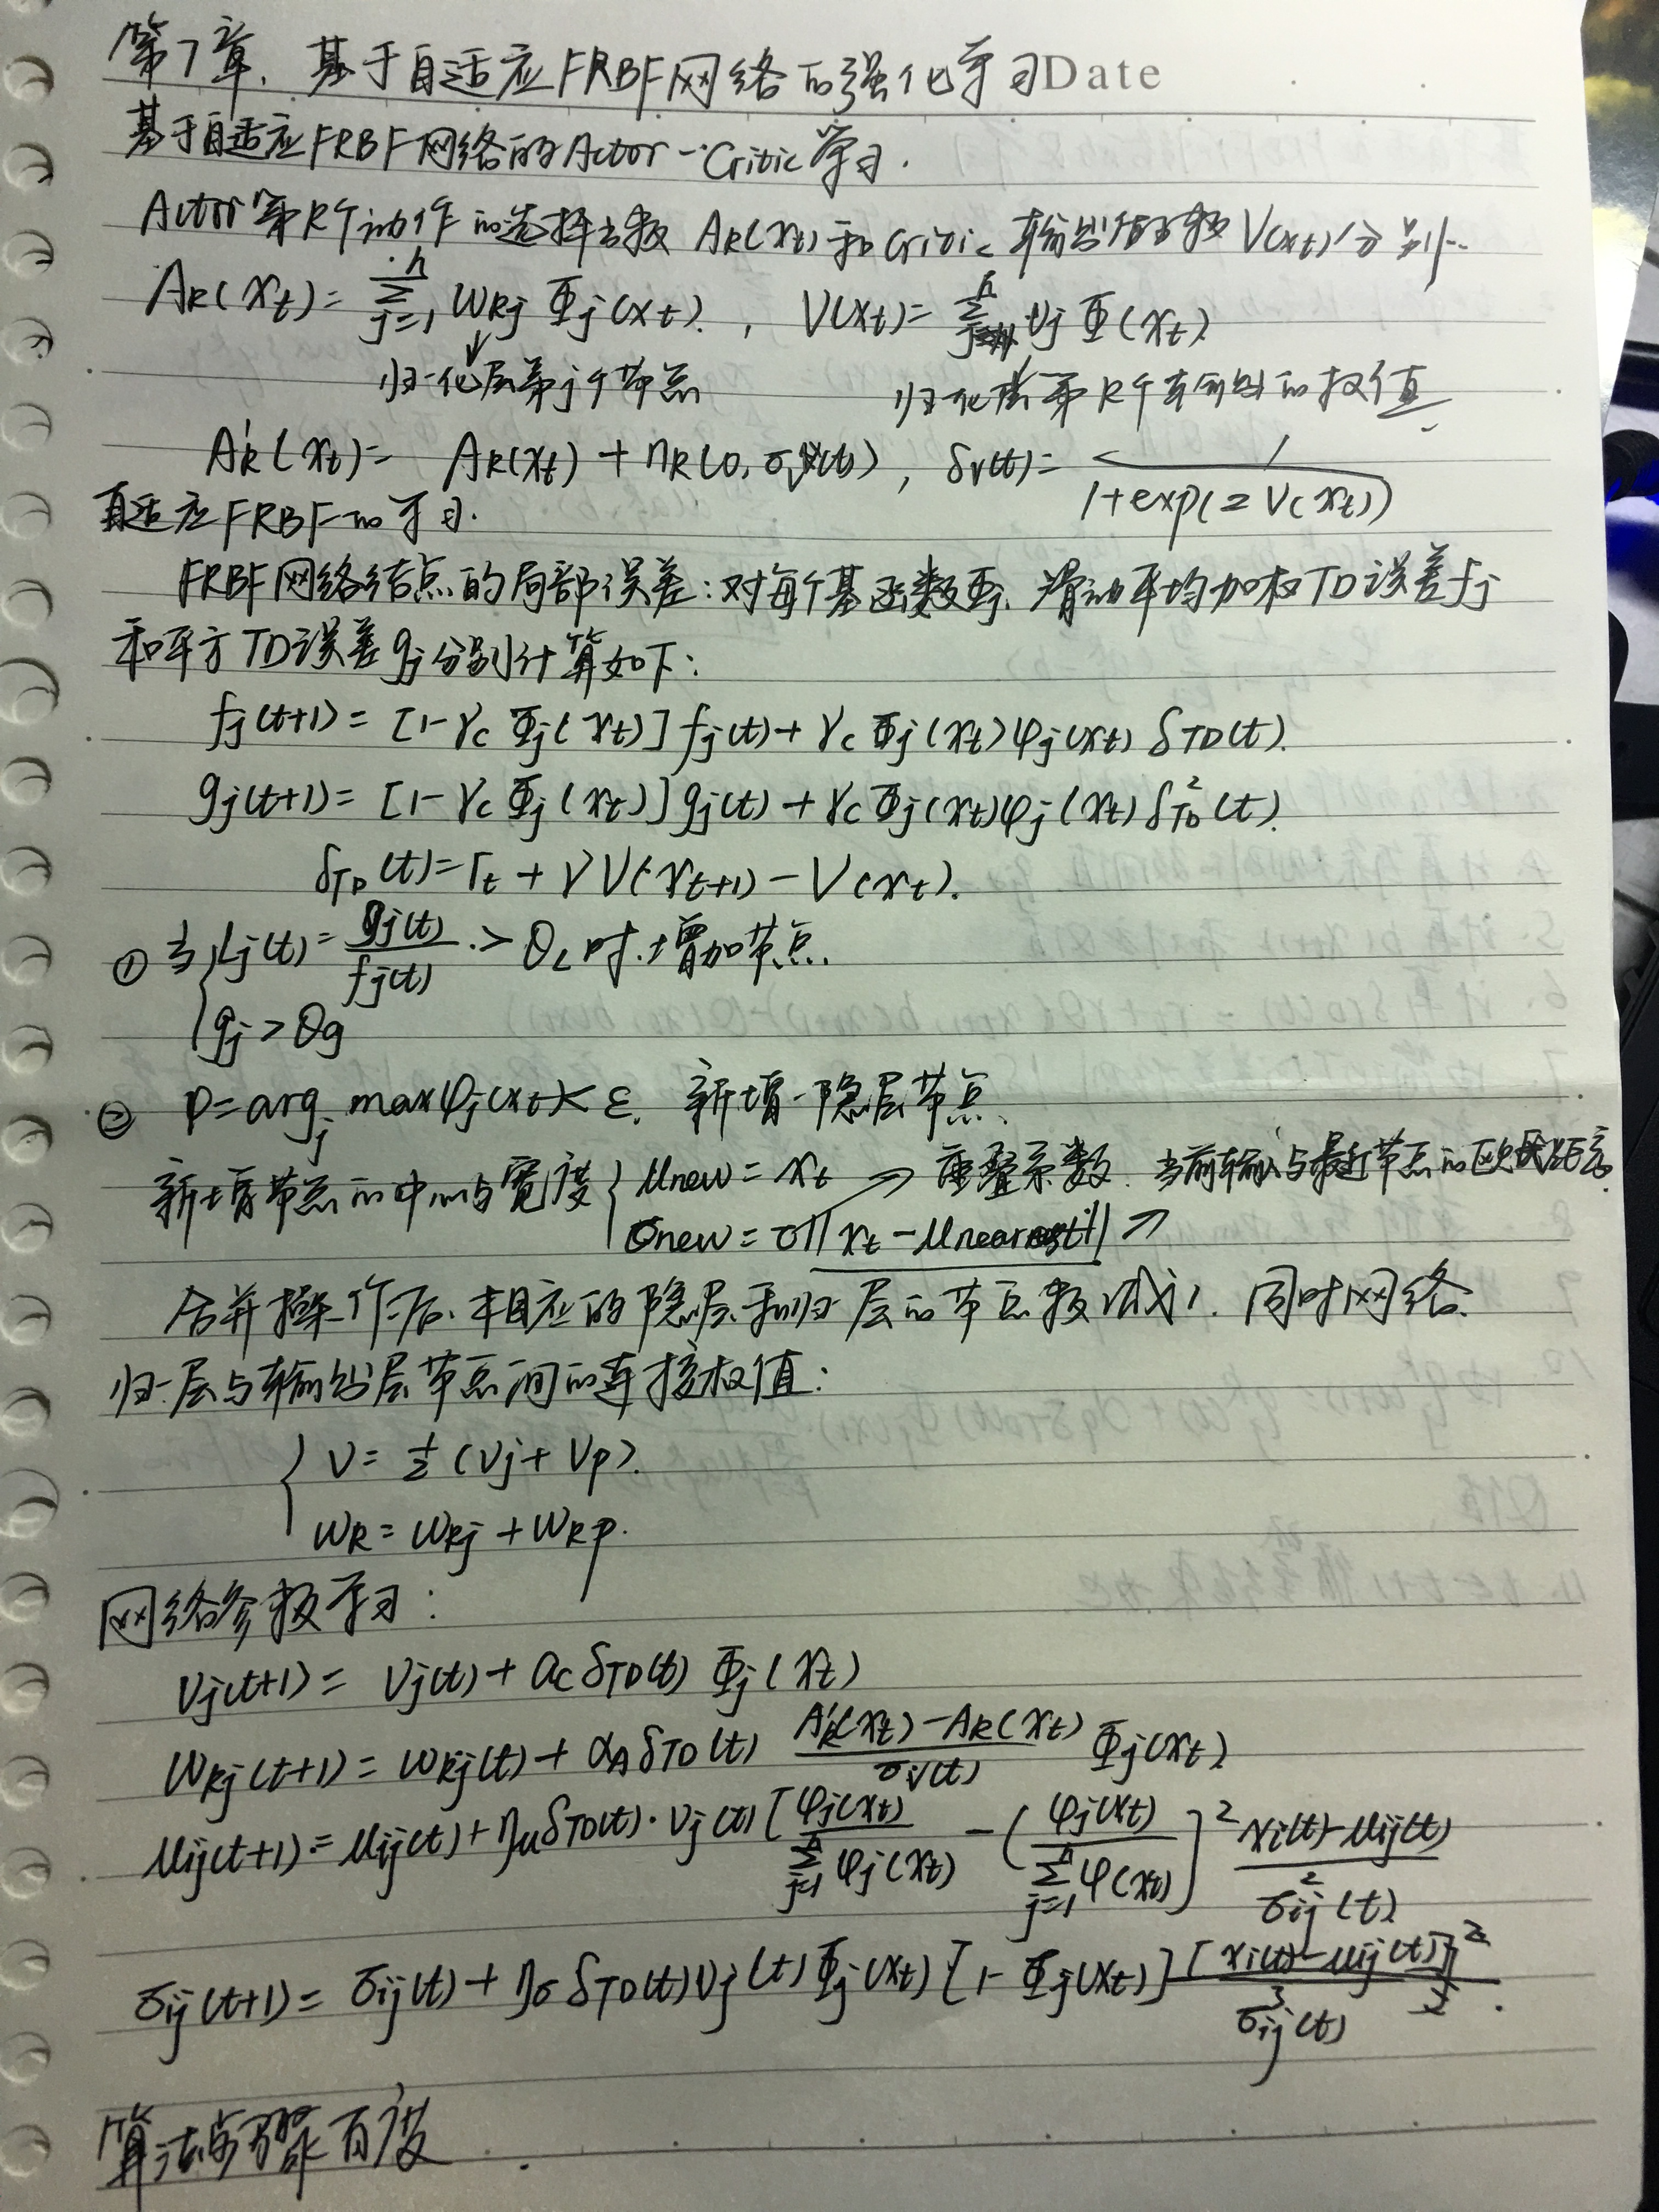 第7章. 基于自适应FRBF网络的强化学习Date
基于自适应FRBF网络的Actor-Critic学习.
Actor第R个动作的选择函数 AR(xt)和Critic输出值函数V(xt)分别..
AR(xt)=Σ(j=1→h) WRj Φj(xt). , V(xt)=Σ Vj Φ(xt)
归一化层第j个节点 归一化层第R个 输出的权值
A'R(xt)= AR(xt)+ηR(0,σv(t)), δv(t)=1/(1+exp(2V(xt)))
自适应FRBF的学习.
FRBF网络结点的局部误差:对每个基函数Φj,滑动平均加权TD误差fj
和平方TD误差gj分别计算如下:
fj(t+1)=[1-γcΦj(xt)]fj(t)+γcΦj(xt)φj(xt)δTD(t).
gj(t+1)=[1-γcΦj(xt)]gj(t)+γcΦj(xt)φj(xt)δ²TD(t).
δTD(t)=rt+γV(xt+1)-V(xt).
①当{Lj(t)=gj(t)/fj(t)>θL时.增加节点.
gj>θg
② P=argj maxφj(xt)<ε. 新增一隐层节点.
新增节点的中心与宽度{μnew=xt →重叠系数. 当前输入与最近节点的欧氏距离.
σnew=σ||xt-μnearest||↗
合并操作后.相应的隐层和归一层的节点数减1. 同时网络
归一层与输出层节点间的连接权值:
{V=½(Vj+Vp).
WR=WRj+WRp.
网络参数学习:
Vj(t+1)= Vj(t)+αcδTD(t) Φj(xt)
WRj(t+1)=WRj(t)+αAδTD(t) (A'R(xt)-AR(xt))/σv(t) Φj(xt)
μij(t+1)=μij(t)+ημδTD(t)·Vj(t)[φj(xt)/Σ(j=1→h)φj(xt) - (φj(xt)/Σ(j=1→h)φ(xt)]² (xi(t)-μij(t))/σ²ij(t)
σij(t+1)=σij(t)+ησδTD(t)Vj(t)Φj(xt)[1-Φj(xt)][xi(t)-μij(t)]²/σ³ij(t).
算法步骤百度.